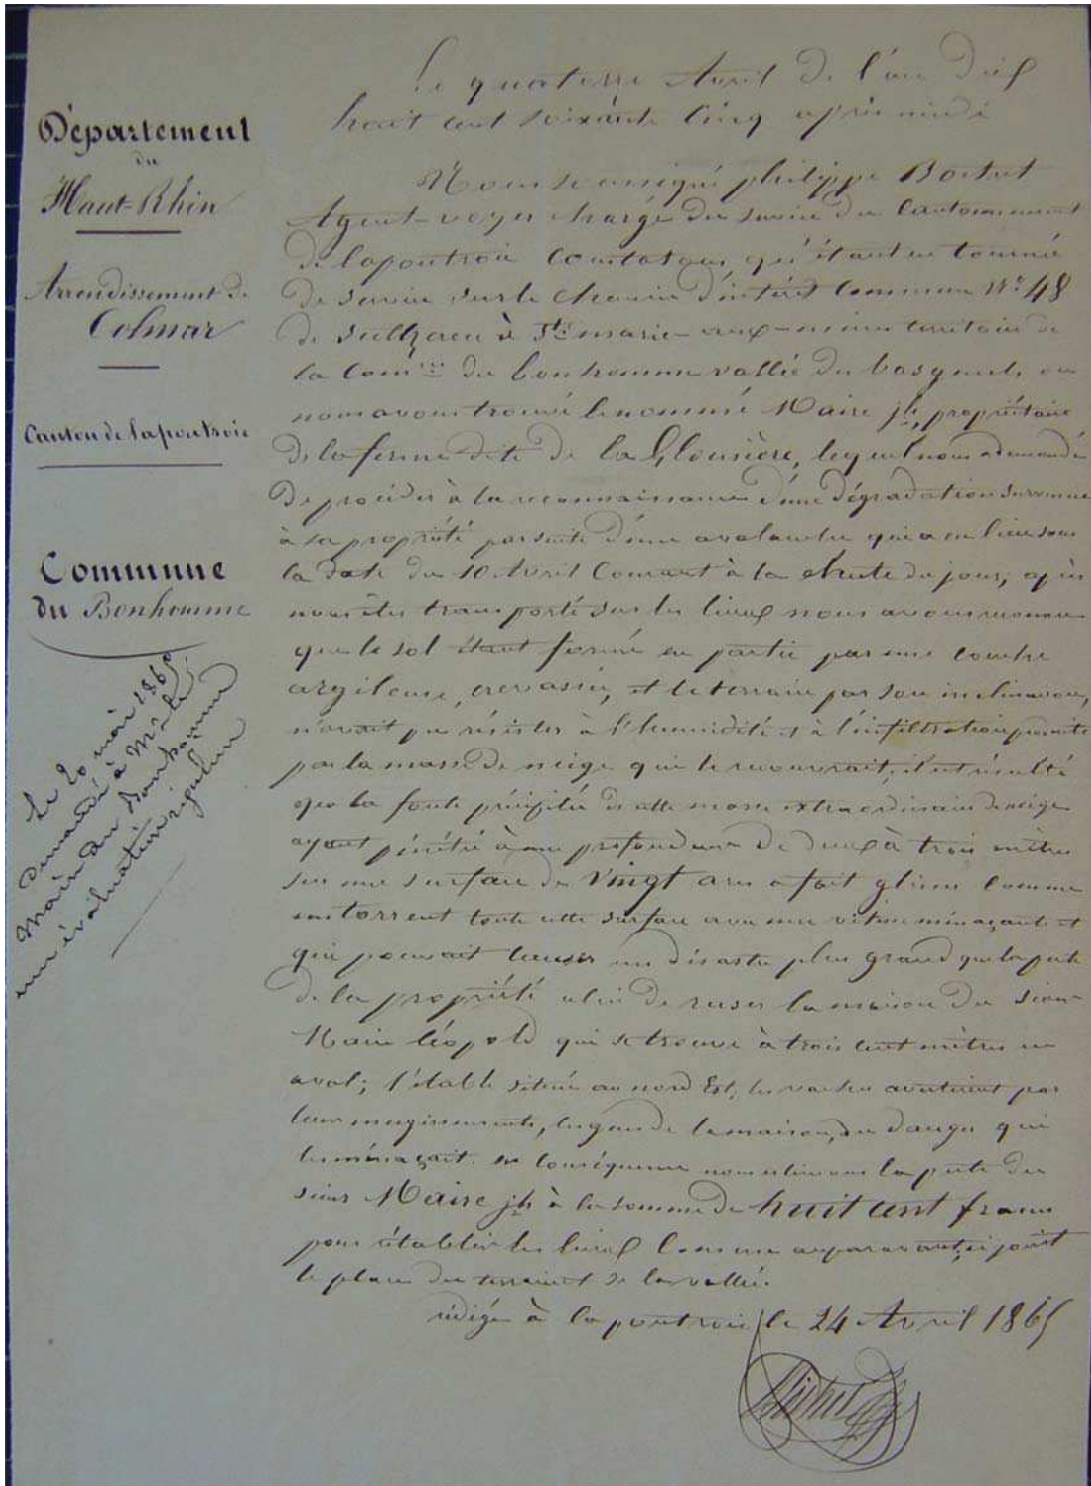 Département
du
Haut-Rhin
Arrondissement de
Colmar
Canton de lapoutroie
Commune
du Bonhomme
Le 20 mai 1865
demandé à Mr le
Maire du Bonhomme
une évaluation régulière
Le quatorze Avril de l'an dix
huit cent soixante cinq après midi
Nous soussigné philippe
Agent-voyer chargé du service du Cantonnement
de lapoutroie Constatons qu'étant en tournée
de service sur le chemin d'intérêt Commun No 48
de Sultzeren à Ste marie-aux-mines territoire de
la Comne du bonhomme vallée du ou
nous avons trouvé le nommé Maire jh, propriétaire
de la ferme dite de la, lequel nous a demandé
de procéder à la reconnaissance d'une dégradation survenue
à sa propriété par suite d'une avalanche qui a eu lieu sous
la date du 10 Avril Courant à la chute du jour, après
nous être transporté sur les lieux nous avons reconnu
que le sol étant formé en partie par une couche
argileuse, crevassée, et le terrain par son inclinaison,
n'avait pu résister à l'humidité et à l'infiltration
par la masse de neige qui le recouvrait, il est résulté
que la fonte précipitée de cette masse extraordinaire de neige
ayant pénétré à une profondeur de deux à trois mètres
sur une surface de Vingt ares a fait glisser Comme
un torrent toute cette surface avec une vitesse menaçante et
qui pouvait causer un désastre plus grand que la perte
de la propriété celui de raser la maison du sieur
Maire léopold qui se trouve à trois cent mètres en
aval; l'étable située au nord Est, les vaches avertirent par
leurs mugissements, les gens de la maison, du danger qui
les menaçait. en Conséquence nous estimons la perte du
sieur Maire jh à la somme de huit cent francs
pour rétablir les lieux Comme auparavant, ci joint
le plan du terrain et de la vallée.
rédigé à lapoutroie le 24 Avril 1865